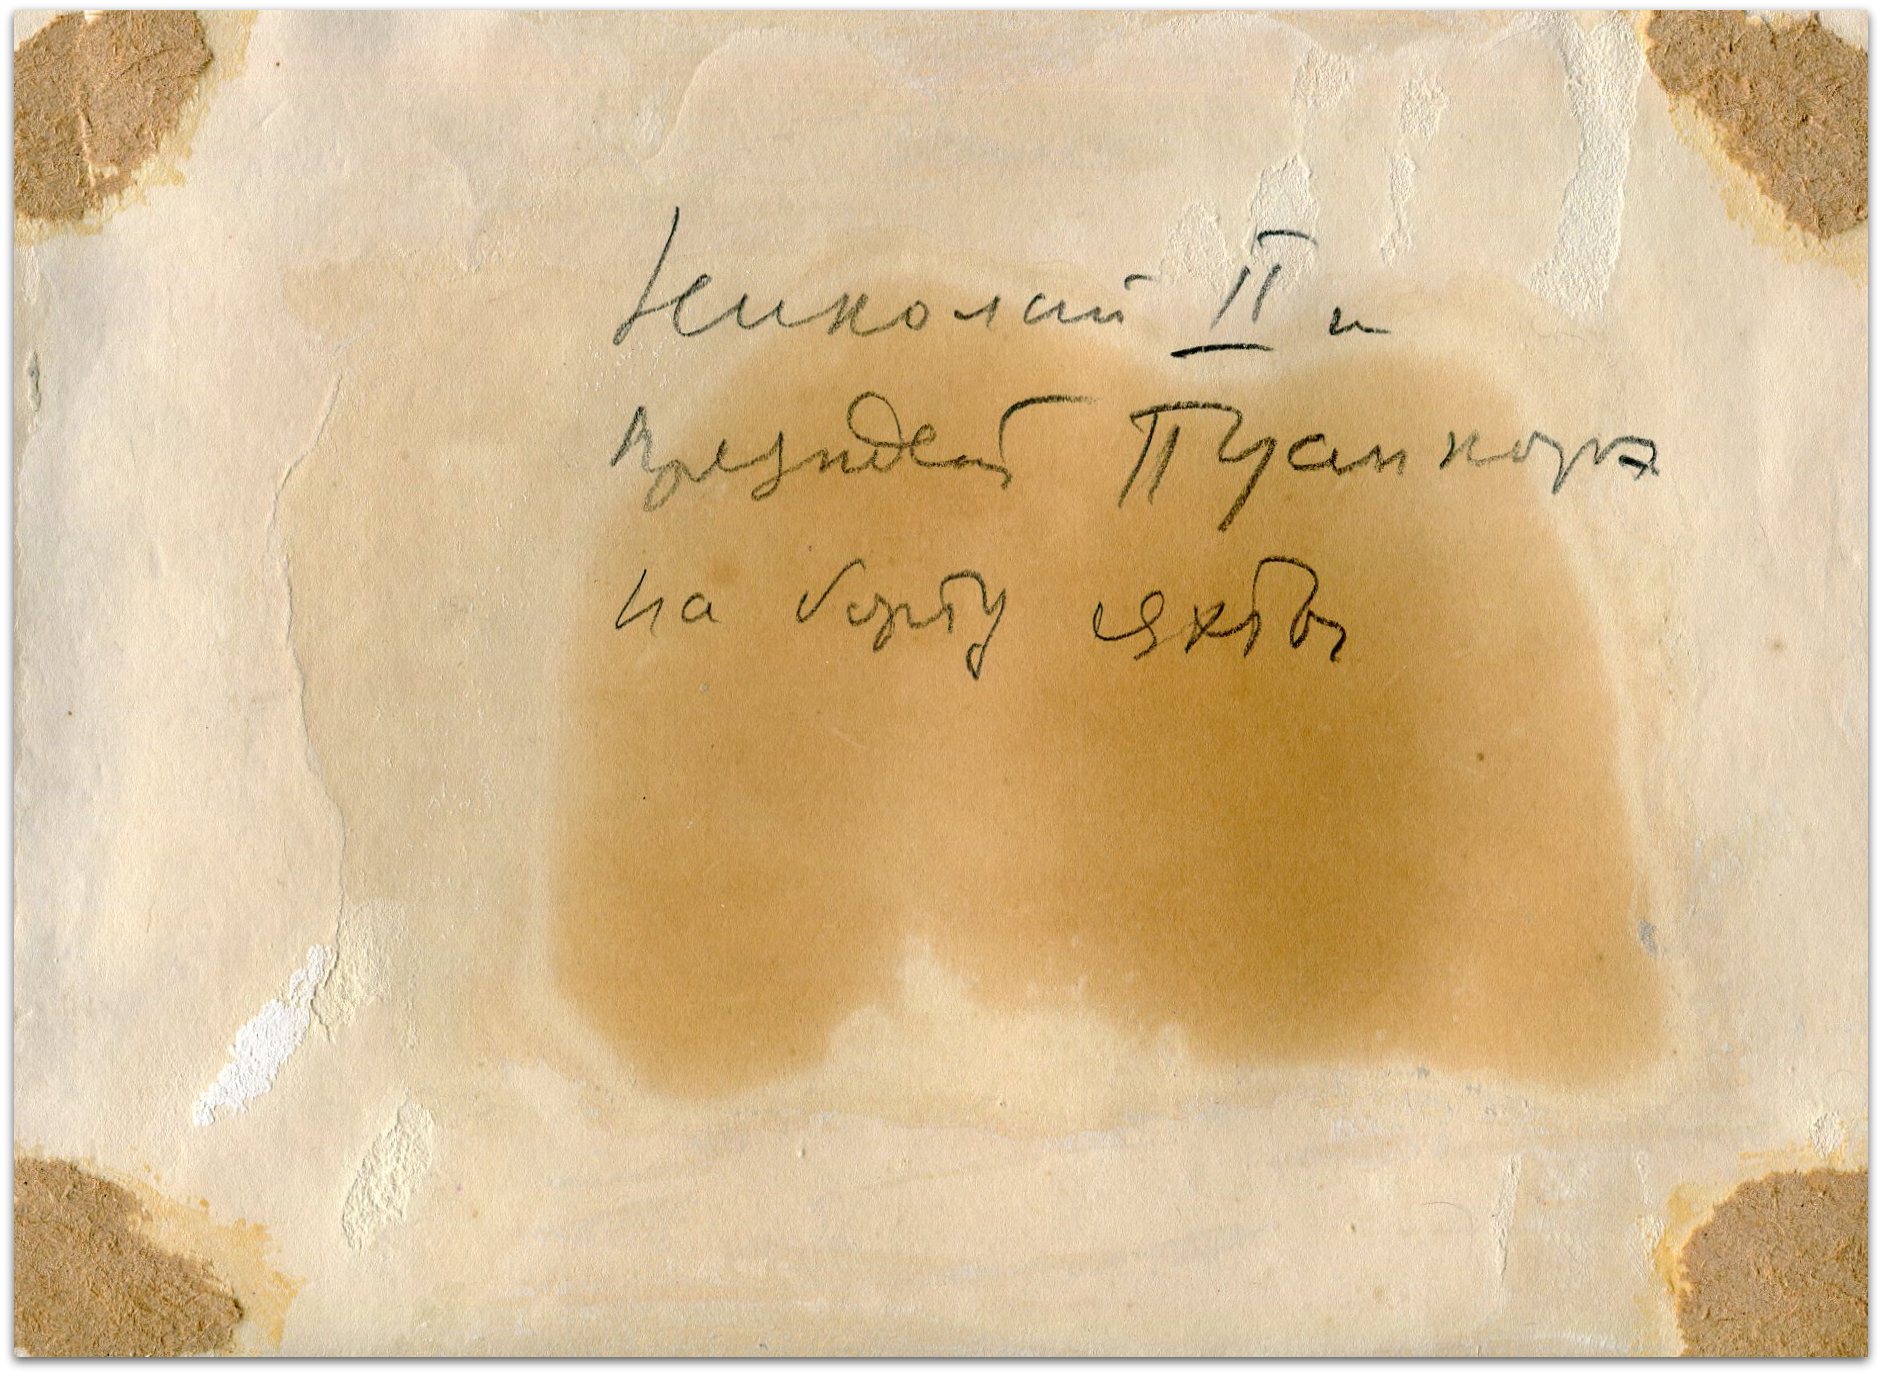 Николай II и
президент Пуанкаре
на борту яхты